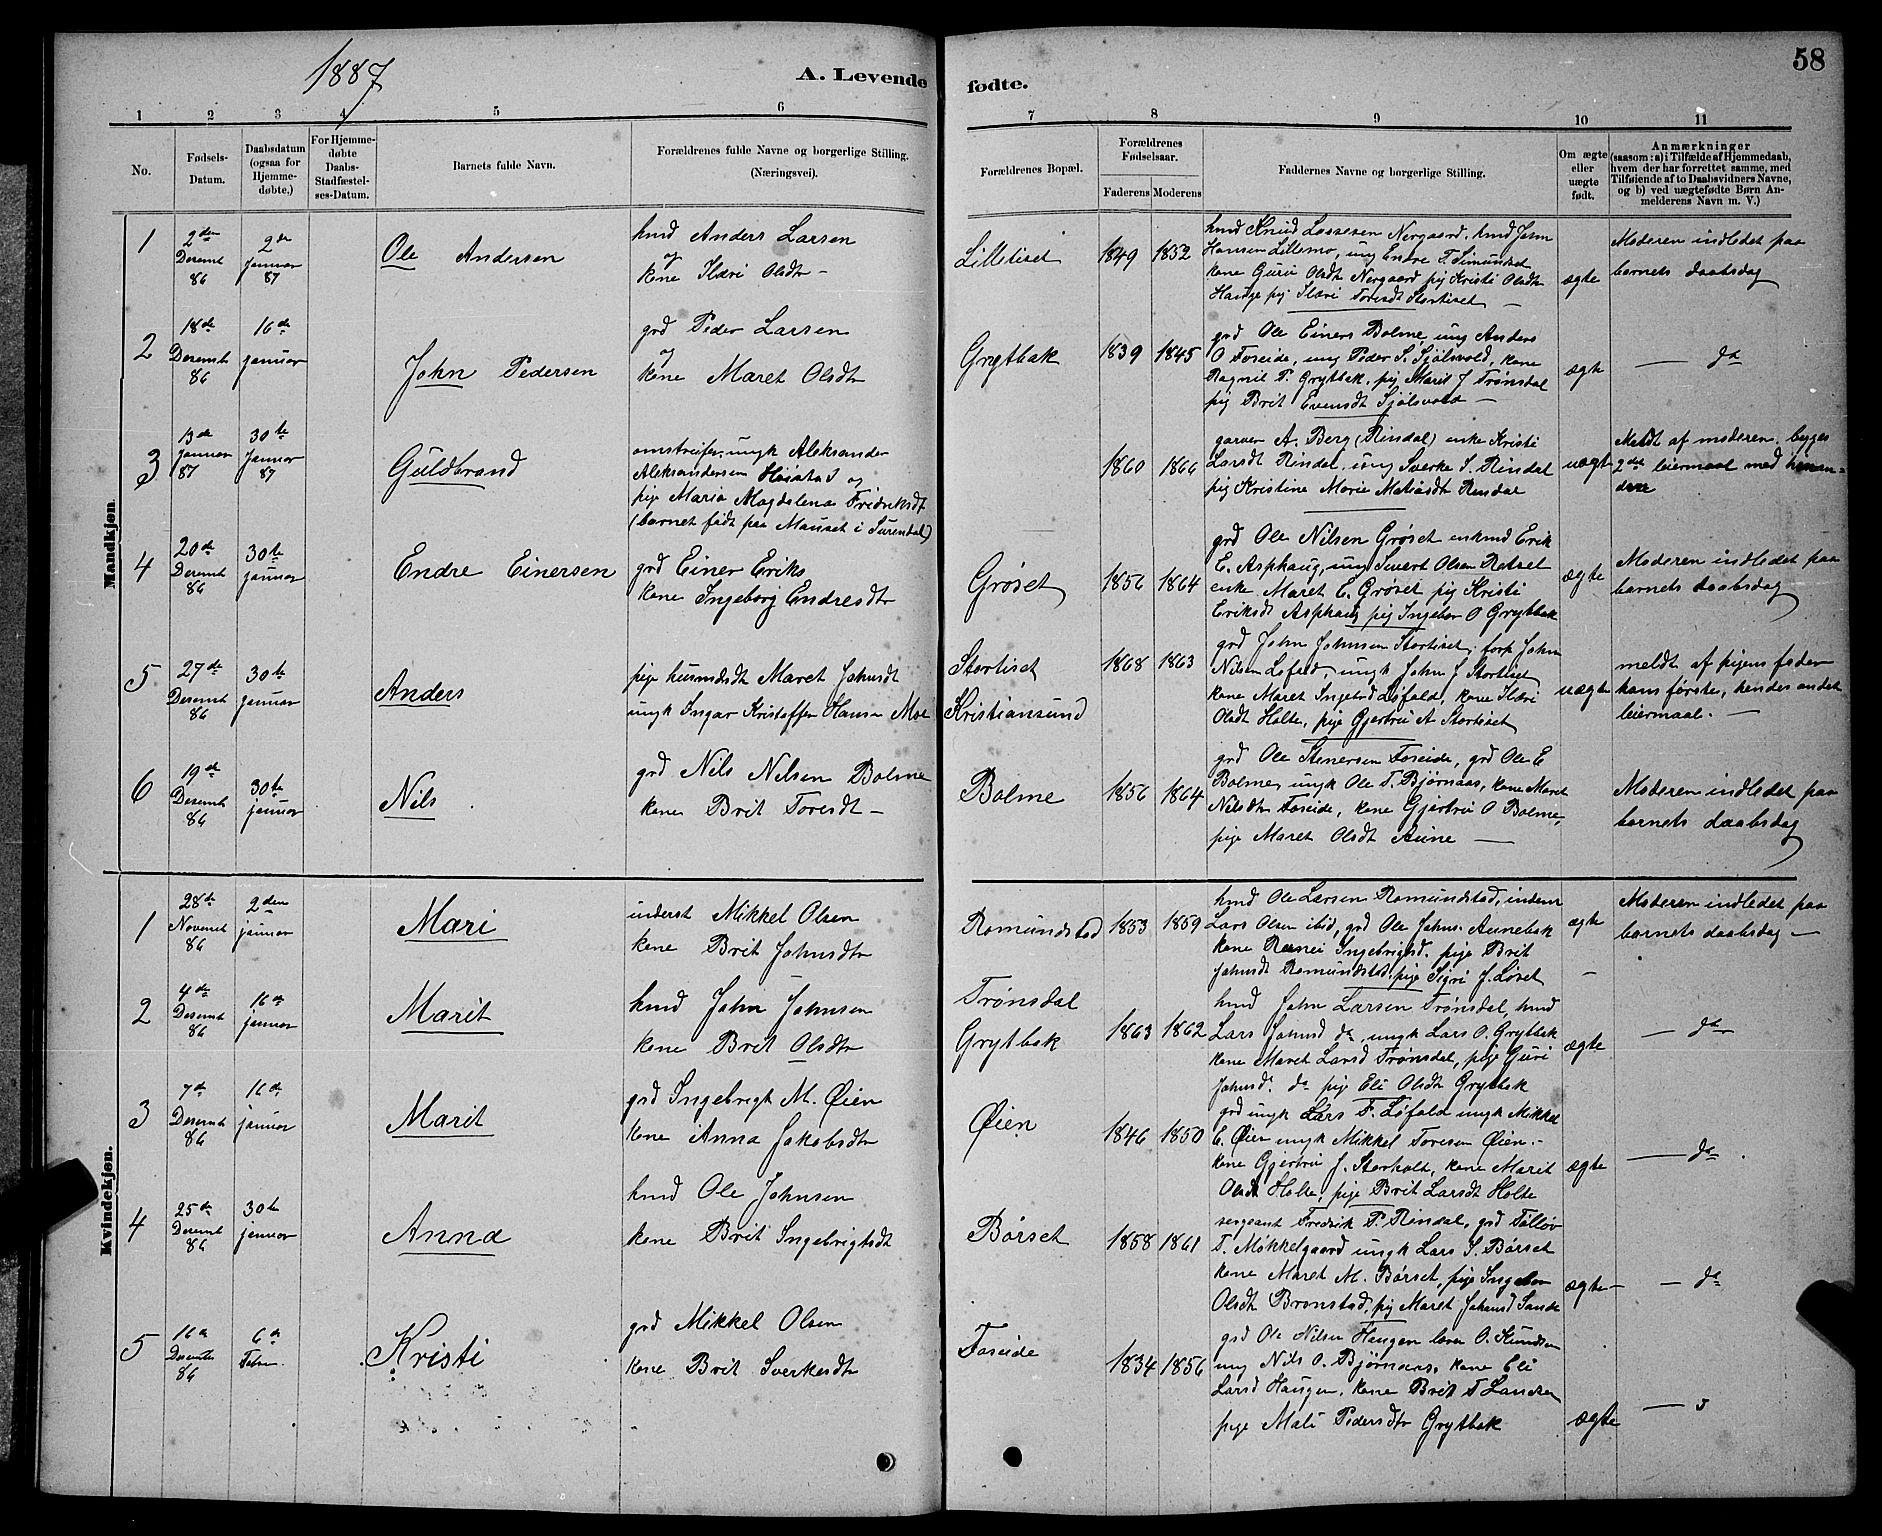 1887
A. Levende
fødte.
58
1 2 3 4 5 6 7 8 9 10 11
No.
Fødsels-Datum.
Daabsdatum (ogsaa for Hjemme-døbte,)
For Hjemme-døbte Daabs-Stadfæstel-ses-Datum.
Barnets fulde Navn.
Forældrenes fulde Navne og borgerlige Stilling.
(Næringsvei).
Forældrenes Bopæl.
Forældrenes Fødselsaar.
Faderens Moderens
Faddernes Navne og borgerlige Stilling.
Om ægte eller uægte født.
Anmærkninger
(saasom: a) i Tilfælde af Hjemmedaab,
hvem der har forrettet samme, med
Tilføiende af to Daabsvidners Navne,
og b) ved uægtefødte Børn An-
melderens Navn m. V.)
Mandkjøn
1
2den Desemt 86
2de Januar 87
Ole Andersen
hmd Anders Larsen
og
kone Ilæri Olsdtr -
Lilletiset
1849 1852
hmd Knud Lassesen Nergaard, hmd John
Hansen Lillemo, ung Endre T. Simundset
kone Guru Olsdt Nergaard pig Kristi Olsdtr
Hauge pig Ilæri Toresdt Stortiset
ægte
Moderen indledet paa
barnets daabsdag
2
18de Desemt 86
16de januar
John Pedersen
grd Peder Larsen
og
kone Maret Olsdtr
Grytbak
1839 1845
grd Ole Einers Bolme, ung Anders
O Foseide, ung Peder S. Sjølsvold, kone
Ragnil P. Grytbak, pig Marit J Trønsdal
pig Brit Evensdt Sjølsvold -
ægte
- da
3
13de Januar 87
30te Januar 87
Guldbrand
omstreifer, ungk Aleksander
Aleksandersen og
pige Maria Magdalena Fredriksdt
(barnet født paa Mauset i Surendal)
1860 1866
garver A. Berg (Rindal) enke Kristi
Larsdt Rindal, ung Sverke S. Rindal
pig Kristine Marie Matiasdt Rindal
uægt
Meldt af moderen. begges
2det leiermaal med
4
20de Desemt 86
30te januar
Endre Einersen
grd Einer Eriks
kone Ingeborg Endresdtr
Grøset
1856 1864
grd Ole Nilsen Grøset enkmd Erik
E. Asphaug, ung Sivert Olsen Retset
enke Maret E. Grøset pig Kristi
Eriksdt Asphaug pig Ingebor O Grytbak
ægte
Moderen indledet paa
barnets daabsdag
5
27de Desemt 86
30te januar
Anders
pige husmdsdt Maret Johnsdt
ungk Ingar Kristoffer Hansen Moe
Stortiset
Kristiansund
1868 1863
grd John Johnsen Stortiset, forp John
Nilsen Løfald, ungk John J Stortiset
kone Maret Ingebr Løfald, kone Ilæri
Olsdt Holte, pige Gjertru A Stortiset
uægte
meldt af pigens fader
hans første, hendes andet
leiermaal. -
6
19de Desemt 86
30te januar
Nils
grd Nils Nilsen Bolme
kone Brit Toresdt -
Bolme
1856 1864
grd Ole Stenersen Foseide, grd Ole E
Bolme, ungk Ole T. Bjørnaas, kone Maret
Nilsdtr Foseide, kone Gjertru O Bolme,
pige Maret Olsdt Aune -
Moderen indledet paa
barnets daabsdag
Kvindekjøn.
1
28de Novemt 86
2den januar
Mari
inderst Mikkel Olsen
kone Brit Johnsdtr
Romundstad
1853 1859
hmd Ole Larsen Romundstad, inderst
Lars Olsen ibid, grd Ole Johns. Aunebak
kone Ingebrigtsd. pige Brit
Johnsdt Romundstad, pige Sigri J. Løset
ægte
Moderen indledet paa
barnets daabsdag -
2
4de Desemt 86
16de januar
Marit
hmd John Johnsen
kone Brit Olsdtr
Trønsdal
Grytbak
1863 1862
hmd John Larsen Trønsdal, hmd
Lars Johnsd da, ungk Lars O. Grytbak
kone Maret Larsd Trønsdal, pige Guri
Johnsd. da pige Eli Olsdt Grytbak
ægte
- da
3
7de Desemt 86
16de januar
Marit
grd Ingebrigt M. Øien
kone Anna Jakobsdtr
Øien
1846 1850
grd ungk Lars F. Løfald ungk Mikkel
E. Øien ungk Mikkel Toresen Øien.-
kone Gjertru J. Storholt, kone Marit
Olsdt Holte, pige Brit Larsdt Holte
ægte
- da
4
25de Desemt 86
30te januar
Anna
hmd Ole Johnsen
kone Brit Ingebrigtsdt
Børset
1858 1861
sergeant Fredrik P. Rindal, grd Tølløv
T. Møkkelgaard ungk Lars S. Børset
kone Maret M. Børset, pige Ingebor
Olsdt Bronstad, pig Maret Johnsd Sande
ægte
- da
5
16de Desember 86
6te Febru
Kristi
grd Mikkel Olsen
kone Brit Sverkesdtr
Foseide
1834 1856
grd Ole Nilsen Haugen lærer O. Knudsen
ung Nils O. Bjørnaas, kone Eli
Larsd Haugen, kone Brit T Landsem
pige Mali Pedersdtr Grytbak
ægte